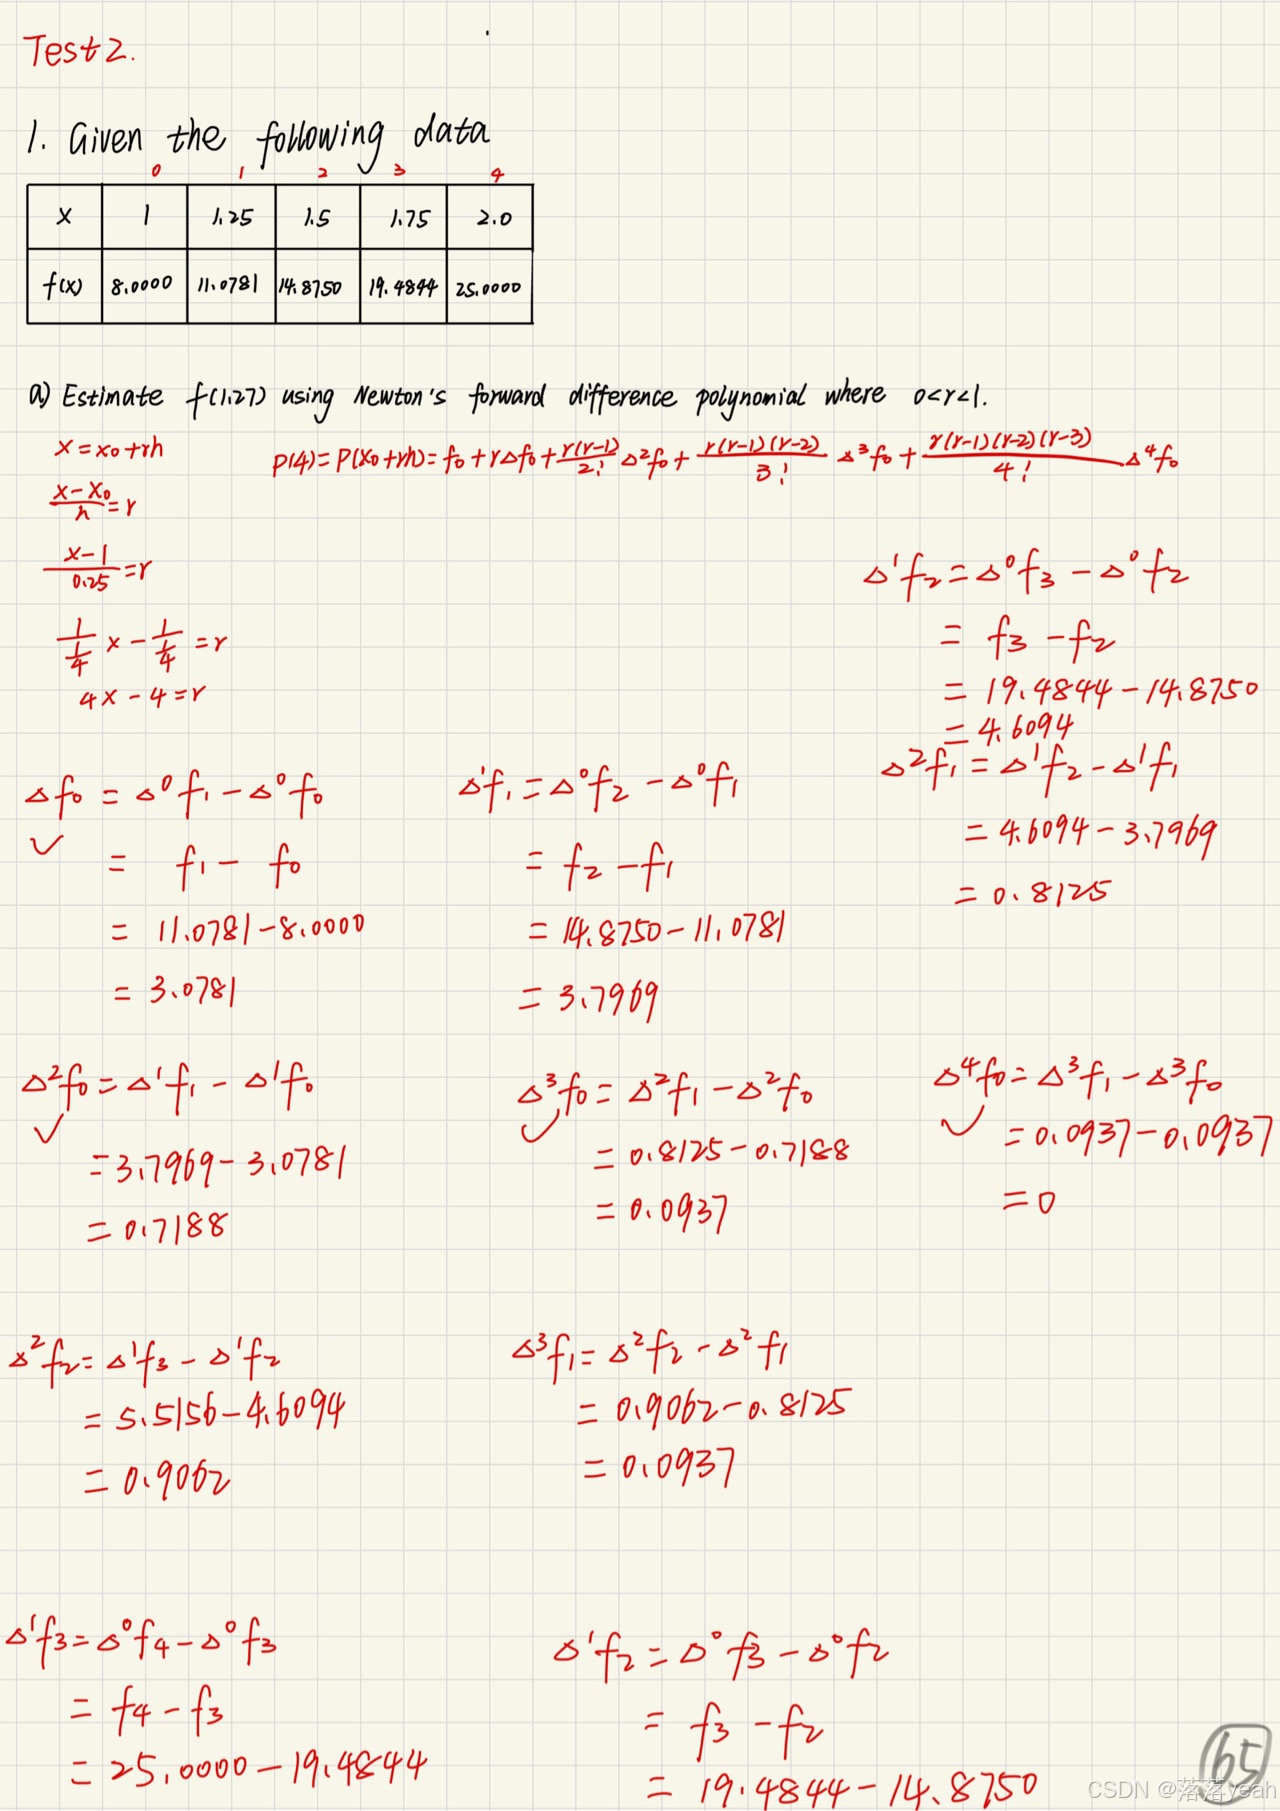 Test 2.
1. Given the following data
0 1 2 3 4
x 1 1.25 1.5 1.75 2.0
f(x) 8.0000 11.0781 14.8750 19.4844 25.0000
a) Estimate f(1.27) using Newton's forward difference polynomial where 0<r<1.
x = x₀+rh
P(4) = P(x₀+rh) = f₀ + rΔf₀ + r(r-1)/2! Δ²f₀ + r(r-1)(r-2)/3! Δ³f₀ + r(r-1)(r-2)(r-3)/4! Δ⁴f₀
(x-x₀)/h = r
(x-1)/0.25 = r
1/(1/4) x - 1/(1/4) = r
4x - 4 = r
Δ¹f₂ = Δ⁰f₃ - Δ⁰f₂
= f₃ - f₂
= 19.4844 - 14.8750
= 4.6094
Δf₀ = Δ⁰f₁ - Δ⁰f₀
= f₁ - f₀
= 11.0781 - 8.0000
= 3.0781
Δ¹f₁ = Δ⁰f₂ - Δ⁰f₁
= f₂ - f₁
= 14.8750 - 11.0781
= 3.7969
Δ²f₁ = Δ¹f₂ - Δ¹f₁
= 4.6094 - 3.7969
= 0.8125
Δ²f₀ = Δ¹f₁ - Δ¹f₀
= 3.7969 - 3.0781
= 0.7188
Δ³f₀ = Δ²f₁ - Δ²f₀
= 0.8125 - 0.7188
= 0.0937
Δ⁴f₀ = Δ³f₁ - Δ³f₀
= 0.0937 - 0.0937
= 0
Δ²f₂ = Δ¹f₃ - Δ¹f₂
= 5.5156 - 4.6094
= 0.9062
Δ³f₁ = Δ²f₂ - Δ²f₁
= 0.9062 - 0.8125
= 0.0937
Δ¹f₃ = Δ⁰f₄ - Δ⁰f₃
= f₄ - f₃
= 25.0000 - 19.4844
Δ¹f₂ = Δ⁰f₃ - Δ⁰f₂
= f₃ - f₂
= 19.4844 - 14.8750
65
CSDN @落落yeah